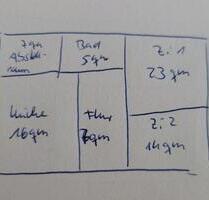 7qm
Abstell-
raum
Bad
5qm
Zi 1
23 qm
Küche
16qm
Flur
7qm
Zi 2
14qm